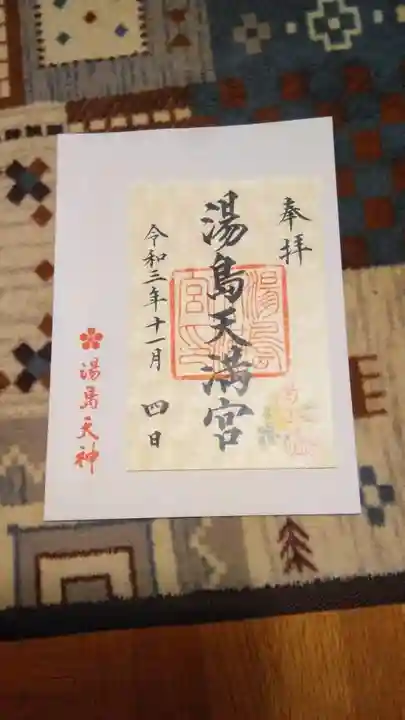 奉拝
湯島天満宮
令和三年十一月四日
湯島天神